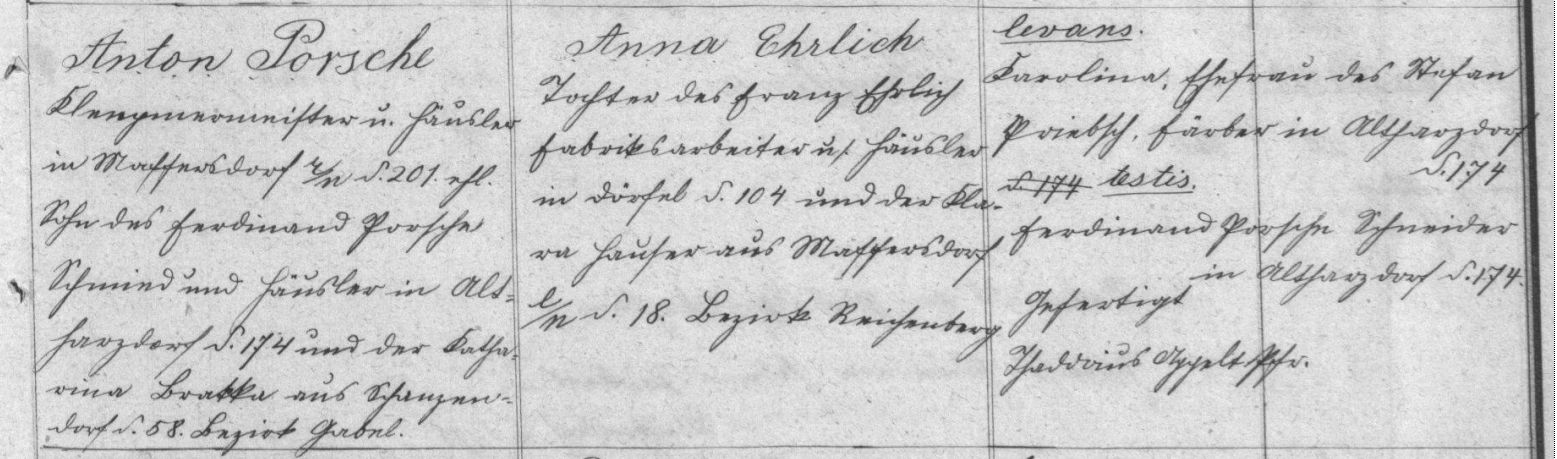 Anton Porsche
Klempnermeister u. Häusler
in Maffersdorf r/N S. 201. ehl.
Sohn des Ferdinand Porsche
Schmied und Häusler in Alt-
harzdorf S. 174 und der Katha-
rina Bratka aus Schanzen-
dorf S. 58. Bezirk Gabel.
Anna Ehrlich
Tochter des Franz Ehrlich
Fabriksarbeiter u. Häusler
in Dörfel S. 104 und der Kla-
ra Hauser aus Maffersdorf
l/N S. 18. Bezirk Reichenberg
levans.
Karolina, Ehefrau des Stefan
Priebsch, Färber in Altharzdorf
S. 174
S. 174 testis.
Ferdinand Porsche Schneider
in Altharzdorf S. 174.
Gefertigt
Thaddäus Appelt Pfr.